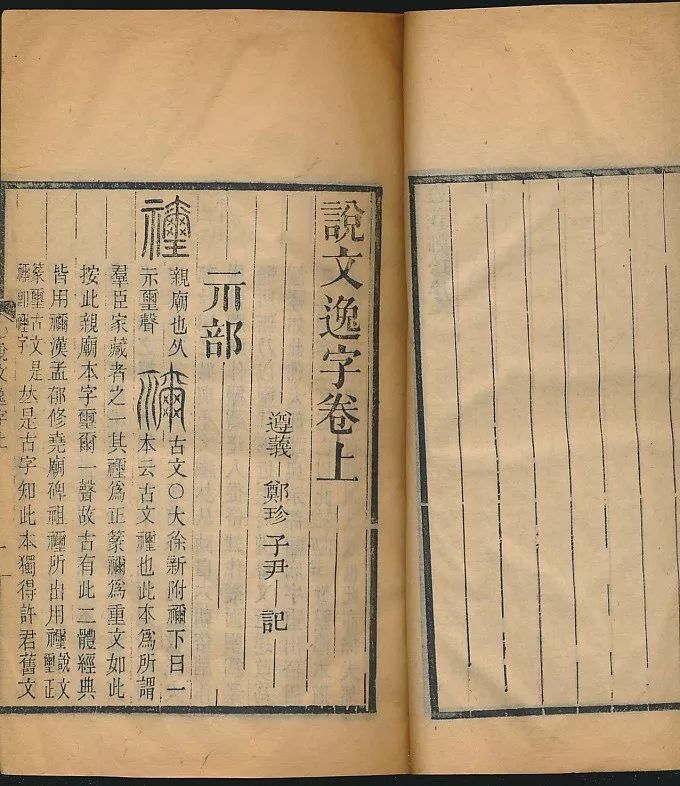 說文逸字卷上
遵義 鄭珍 子尹 記
示部
𥜬 親廟也从示璽聲 禰 古文〇大徐新附禰下曰一
本云古文𥜬也此本爲所謂
羣臣家藏者之一其𥜬爲正篆禰爲重文如此
按此親廟本字璽爾一聲故古有此二體經典
皆用禰漢孟郁修堯廟碑祖𥜬所出用𥜬說文璽正
篆璽古文是𥜬卽𥜬字然是古字知此本獨得許君舊文
文逸字上